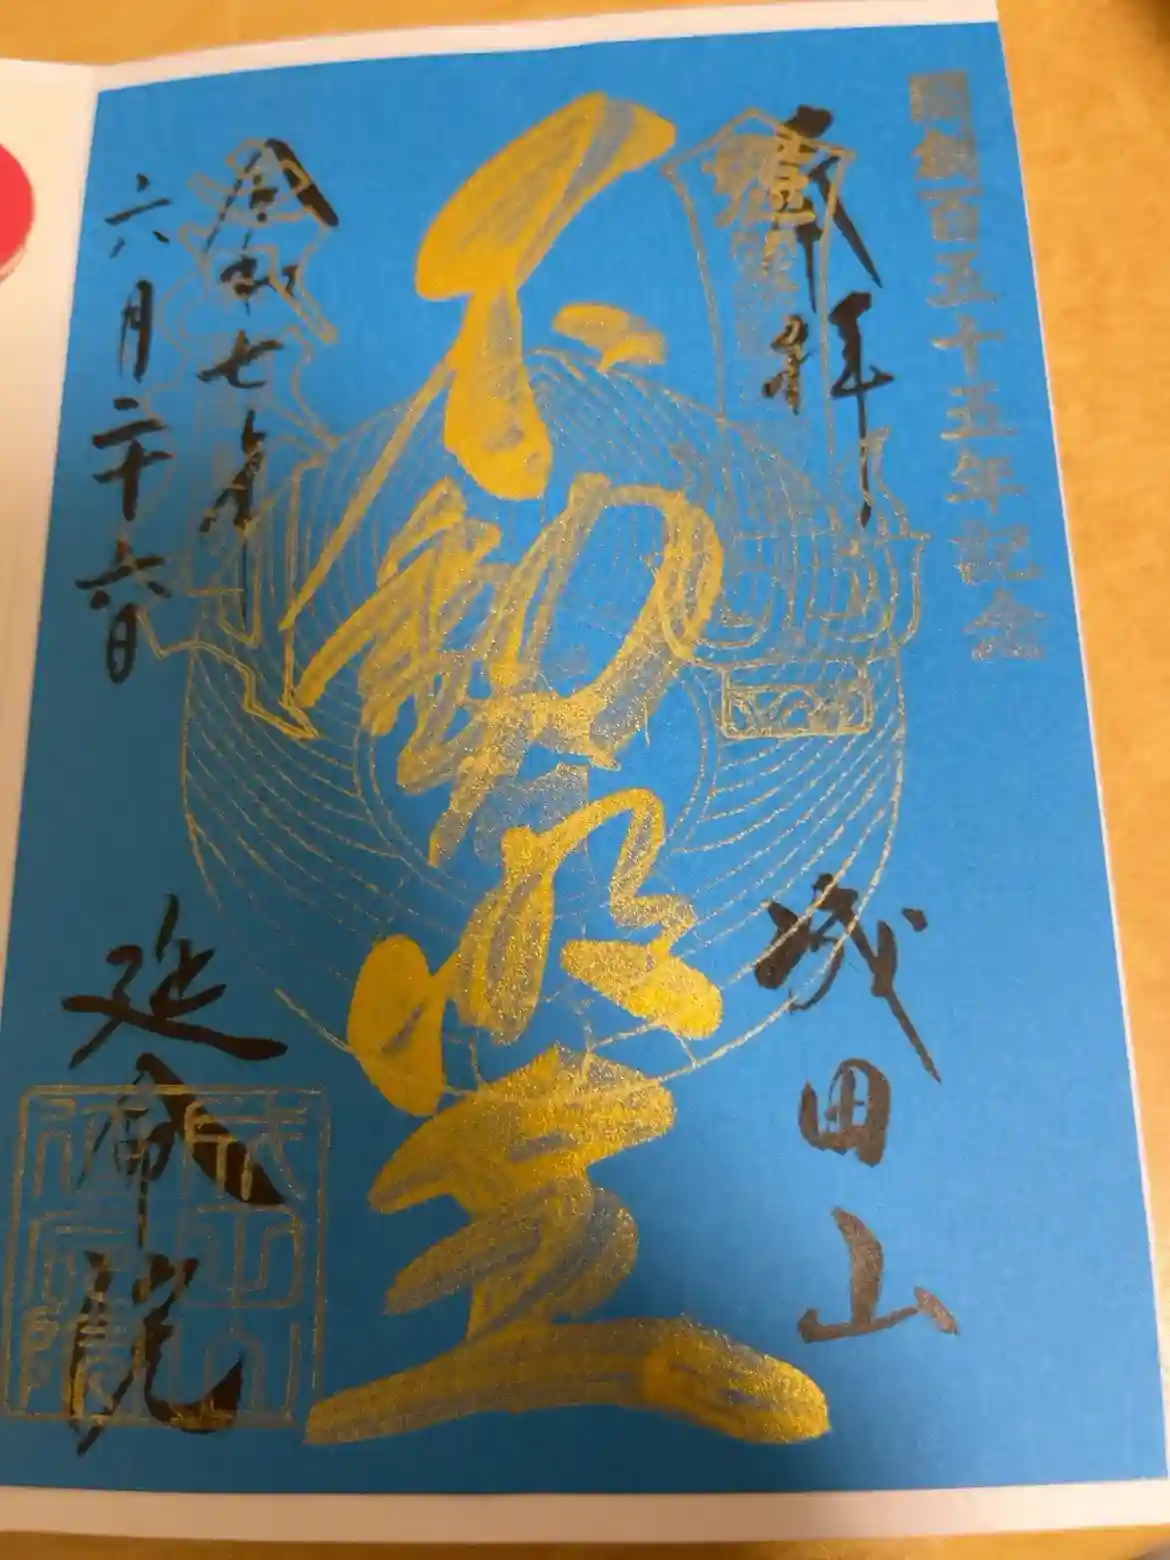 開創百五十五年記念
奉拝
成田山
不動明王
令和七年
六月二十六日
延命院